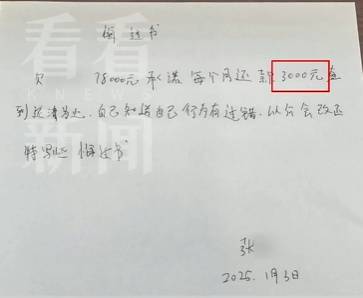 悔过书
欠 78000元 承诺每个月还款3000元直
到还清为止.自己知道自己行为有过错.以后会改正
特写此悔过书
张
2025.1月3日.
看看
KNEWS
新闻